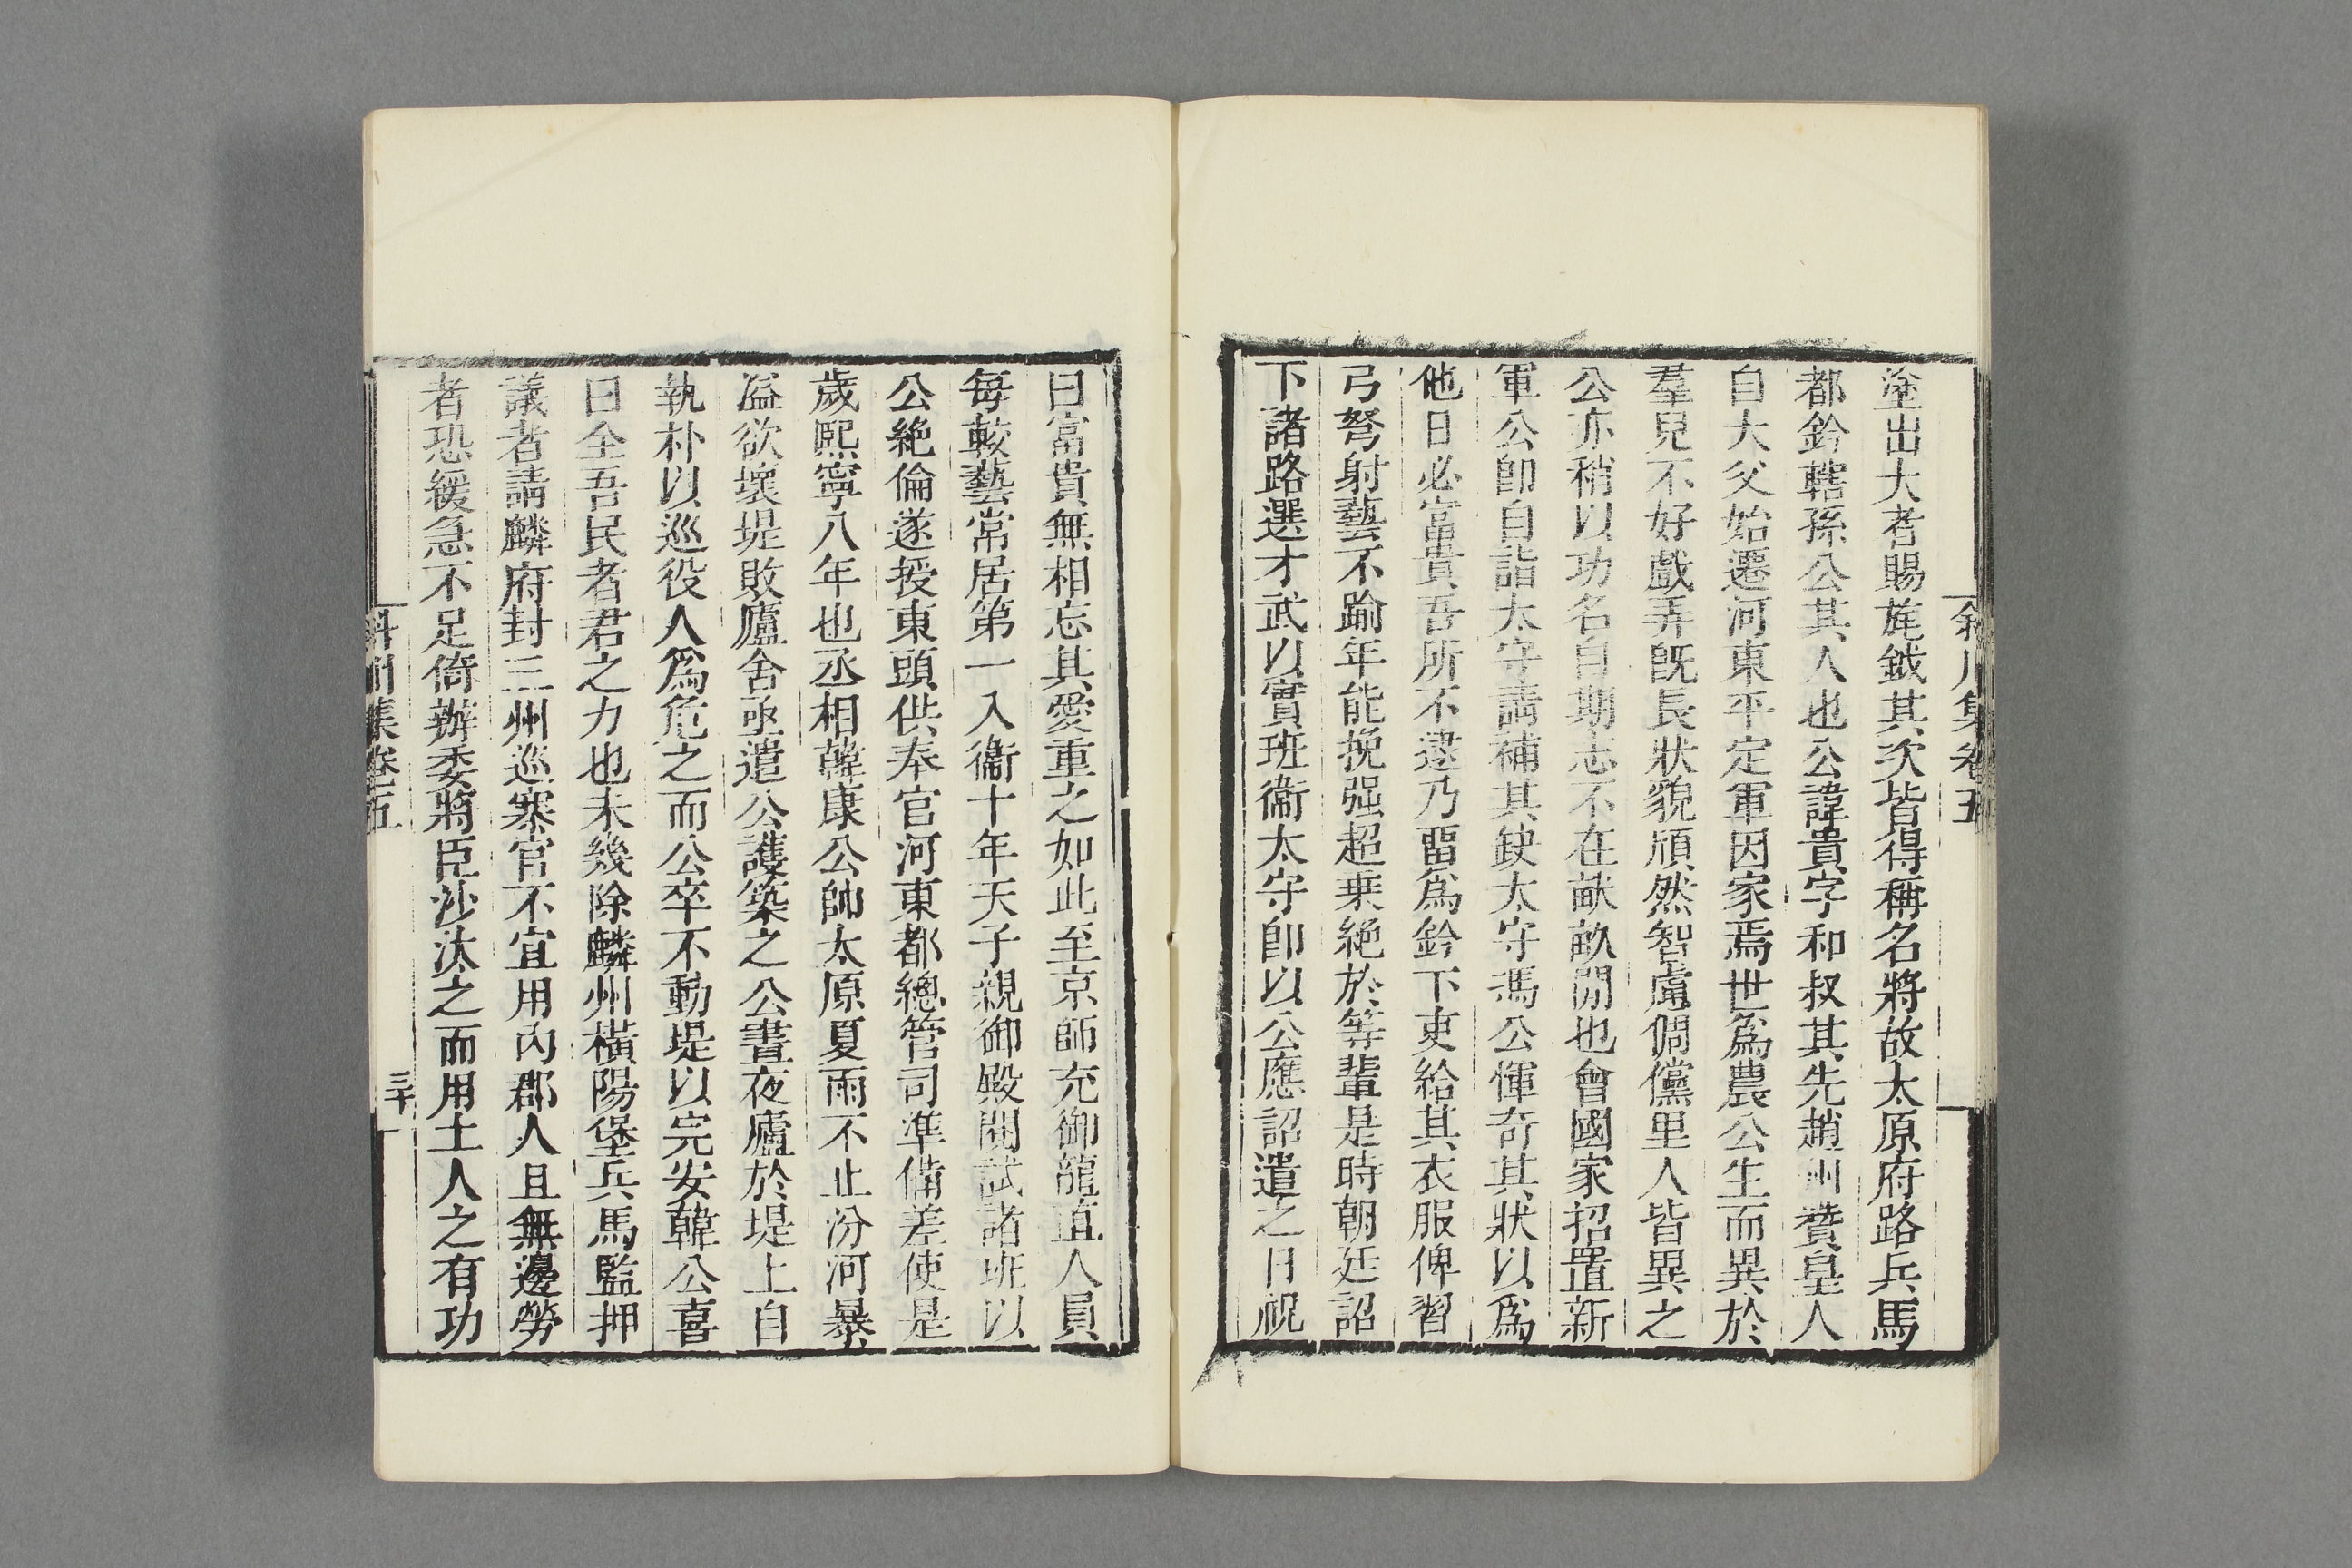 斜川集卷五
塗出大者賜旄鉞其次皆得稱名將故太原府路兵馬
都鈐轄孫公其人也公諱貴字和叔其先趙州贊皇人
自大父始遷河東平定軍因家焉世爲農公生而異於
羣兒不好戲弄旣長狀貌頎然智慮倜儻里人皆異之
公亦稍以功名自期志不在畎畝閒也會國家招置新
軍公卽自詣太守請補其缺太守馮公惲奇其狀以爲
他日必富貴吾所不逮乃畱爲鈐下吏給其衣服俾習
弓弩射藝不踰年能挽强超乘絶於等輩是時朝廷詔
下諸路選才武以實班衞太守卽以公應詔遣之日祝
曰富貴無相忘其愛重之如此至京師充御龍直人員
每較藝常居第一入衞十年天子親御殿閱試諸班以
公絶倫遂授東頭供奉官河東都總管司準備差使是
歲熙寧八年也丞相韓康公帥太原夏雨不止汾河暴
溢欲壞堤敗廬舍亟遣公護築之公晝夜廬於堤上自
執朴以巡役人爲危之而公卒不動堤以完安韓公喜
曰全吾民者君之力也未幾除麟州橫陽堡兵馬監押
議者請麟府封三州巡寨官不宜用內郡人且無邊勞
者恐緩急不足倚辦委將臣沙汰之而用土人之有功
斜川集卷五
三十